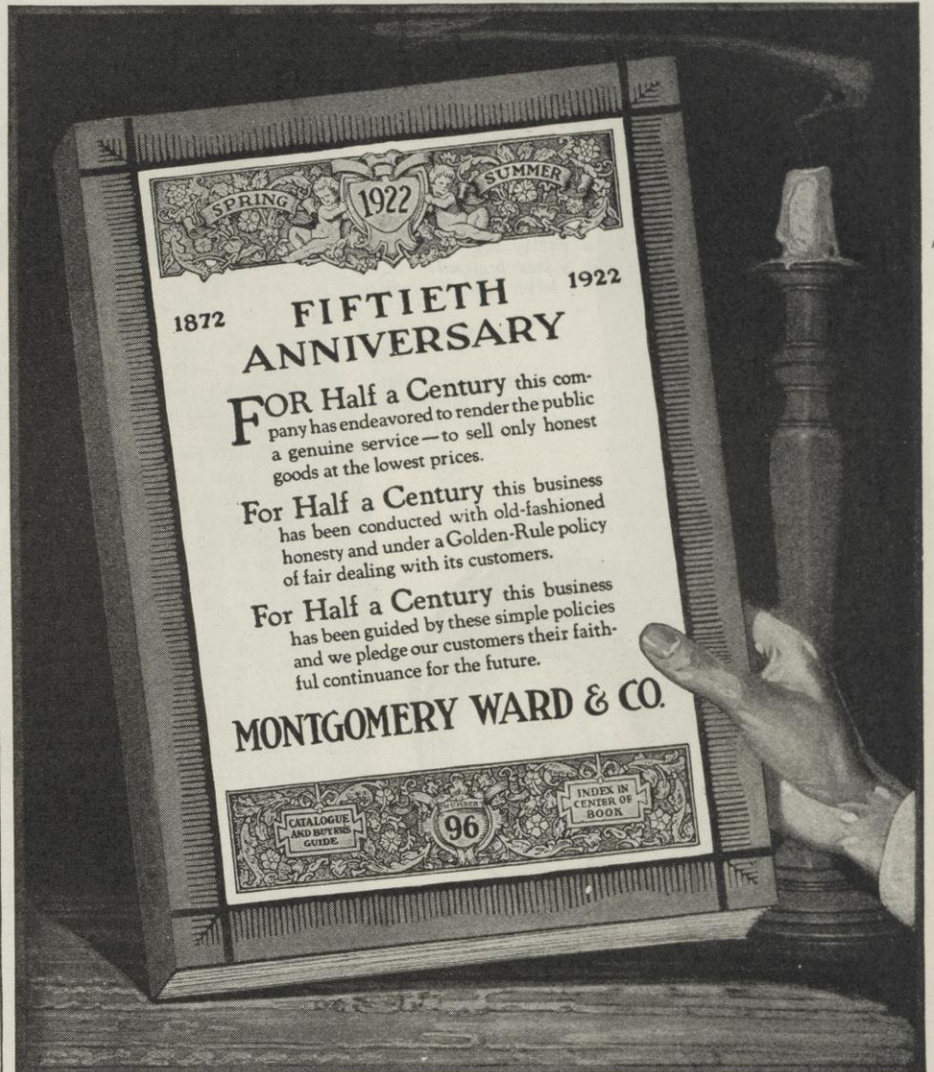 SPRING 1922 SUMMER
1872 FIFTIETH 1922
ANNIVERSARY
FOR Half a Century this com-
pany has endeavored to render the public
a genuine service—to sell only honest
goods at the lowest prices.
For Half a Century this business
has been conducted with old-fashioned
honesty and under a Golden-Rule policy
of fair dealing with its customers.
For Half a Century this business
has been guided by these simple policies
and we pledge our customers their faith-
ful continuance for the future.
MONTGOMERY WARD & CO.
CATALOGUE
AND BUYERS
GUIDE
NUMBER
96
INDEX IN
CENTER OF
BOOK